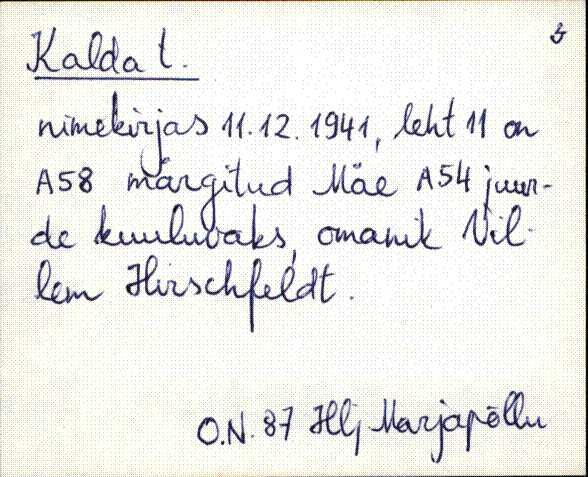 Kalda t.
nimekirjas 11.12.1941, leht 11 on
A58 märgitud Mäe A54 juur-
de kuuluvaks, omanik Vil-
lem Hirschfeldt.
O.N. 87 Hlj Marjapõllu